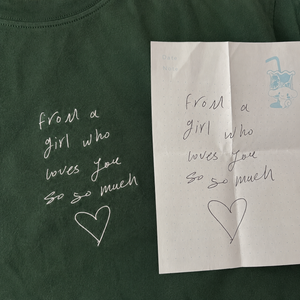 from a
girl who
loves you
so so much
from a
girl who
loves you
so so much